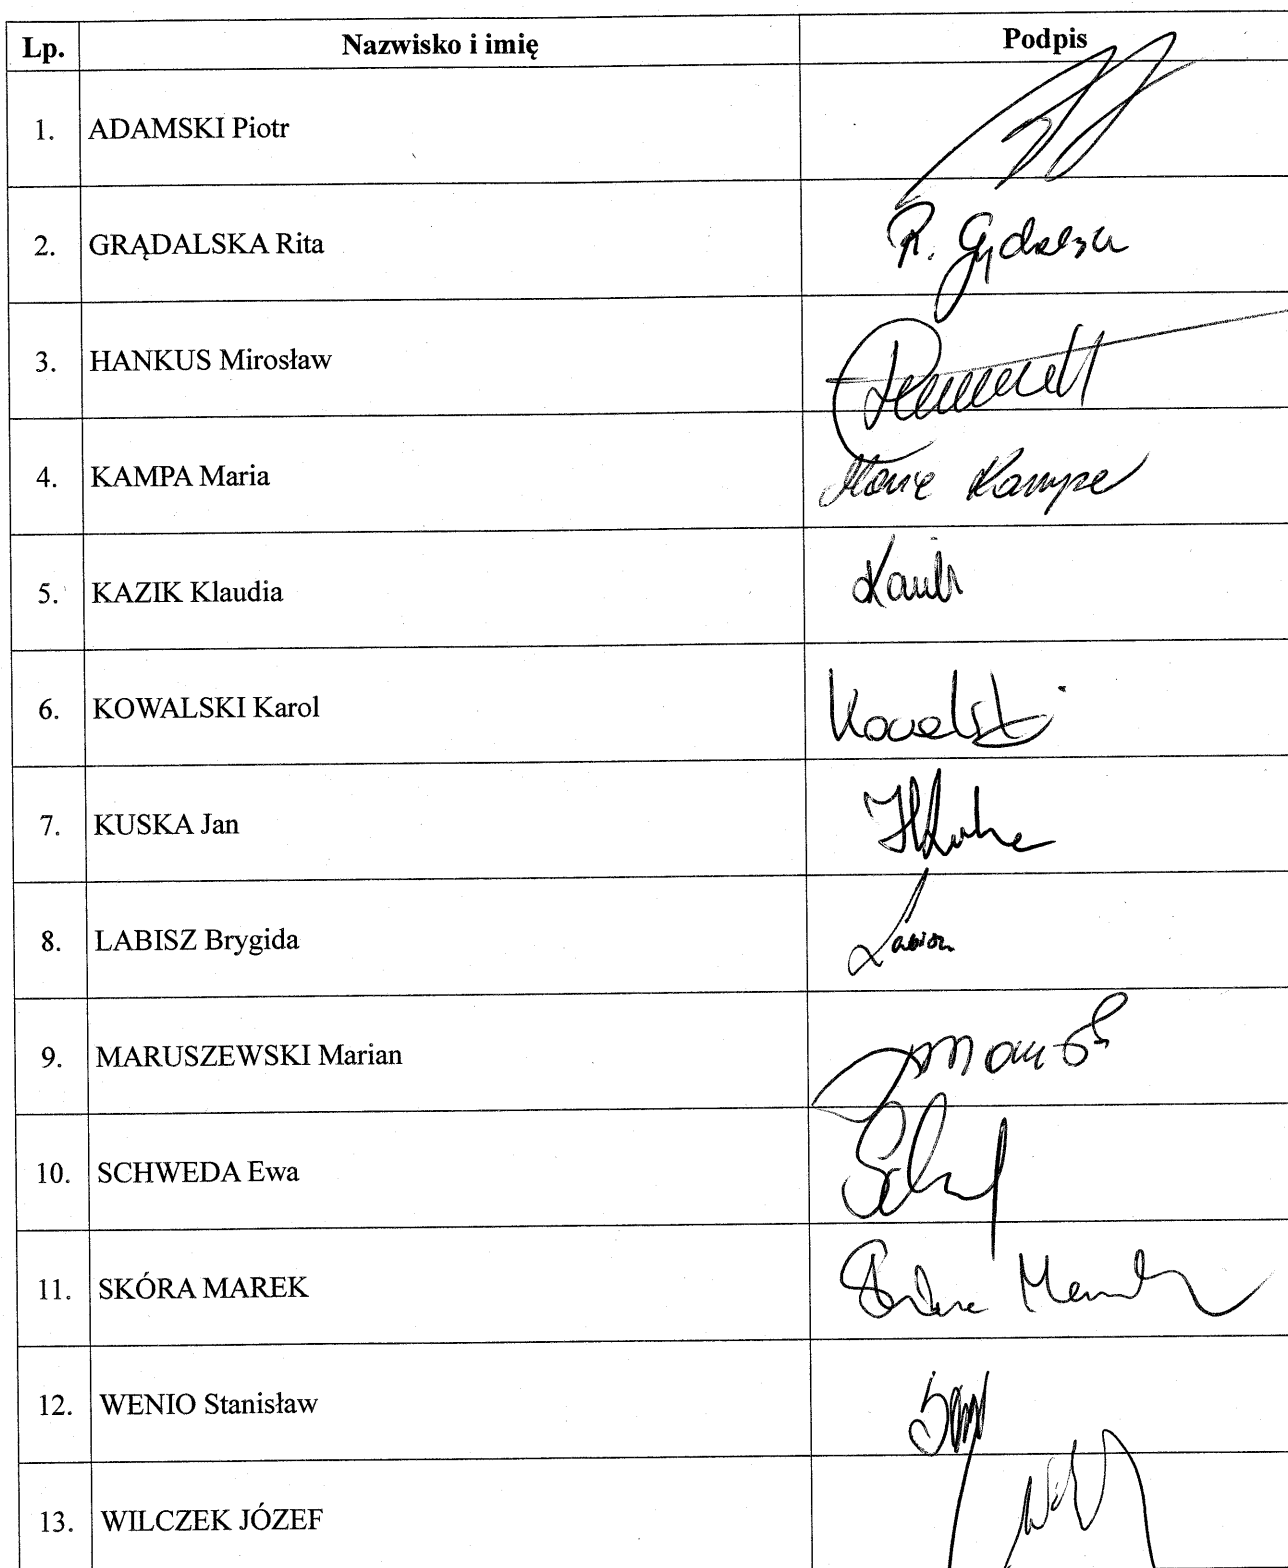 Lp. Nazwisko i imię Podpis
1. ADAMSKI Piotr
2. GRĄDALSKA Rita R.
3. HANKUS Mirosław
4. KAMPA Maria Maria Kampa
5. KAZIK Klaudia
6. KOWALSKI Karol Kowalski
7. KUSKA Jan
8. LABISZ Brygida Labisz
9. MARUSZEWSKI Marian
10. SCHWEDA Ewa
11. SKÓRA MAREK Skóra Marek
12. WENIO Stanisław
13. WILCZEK JÓZEF